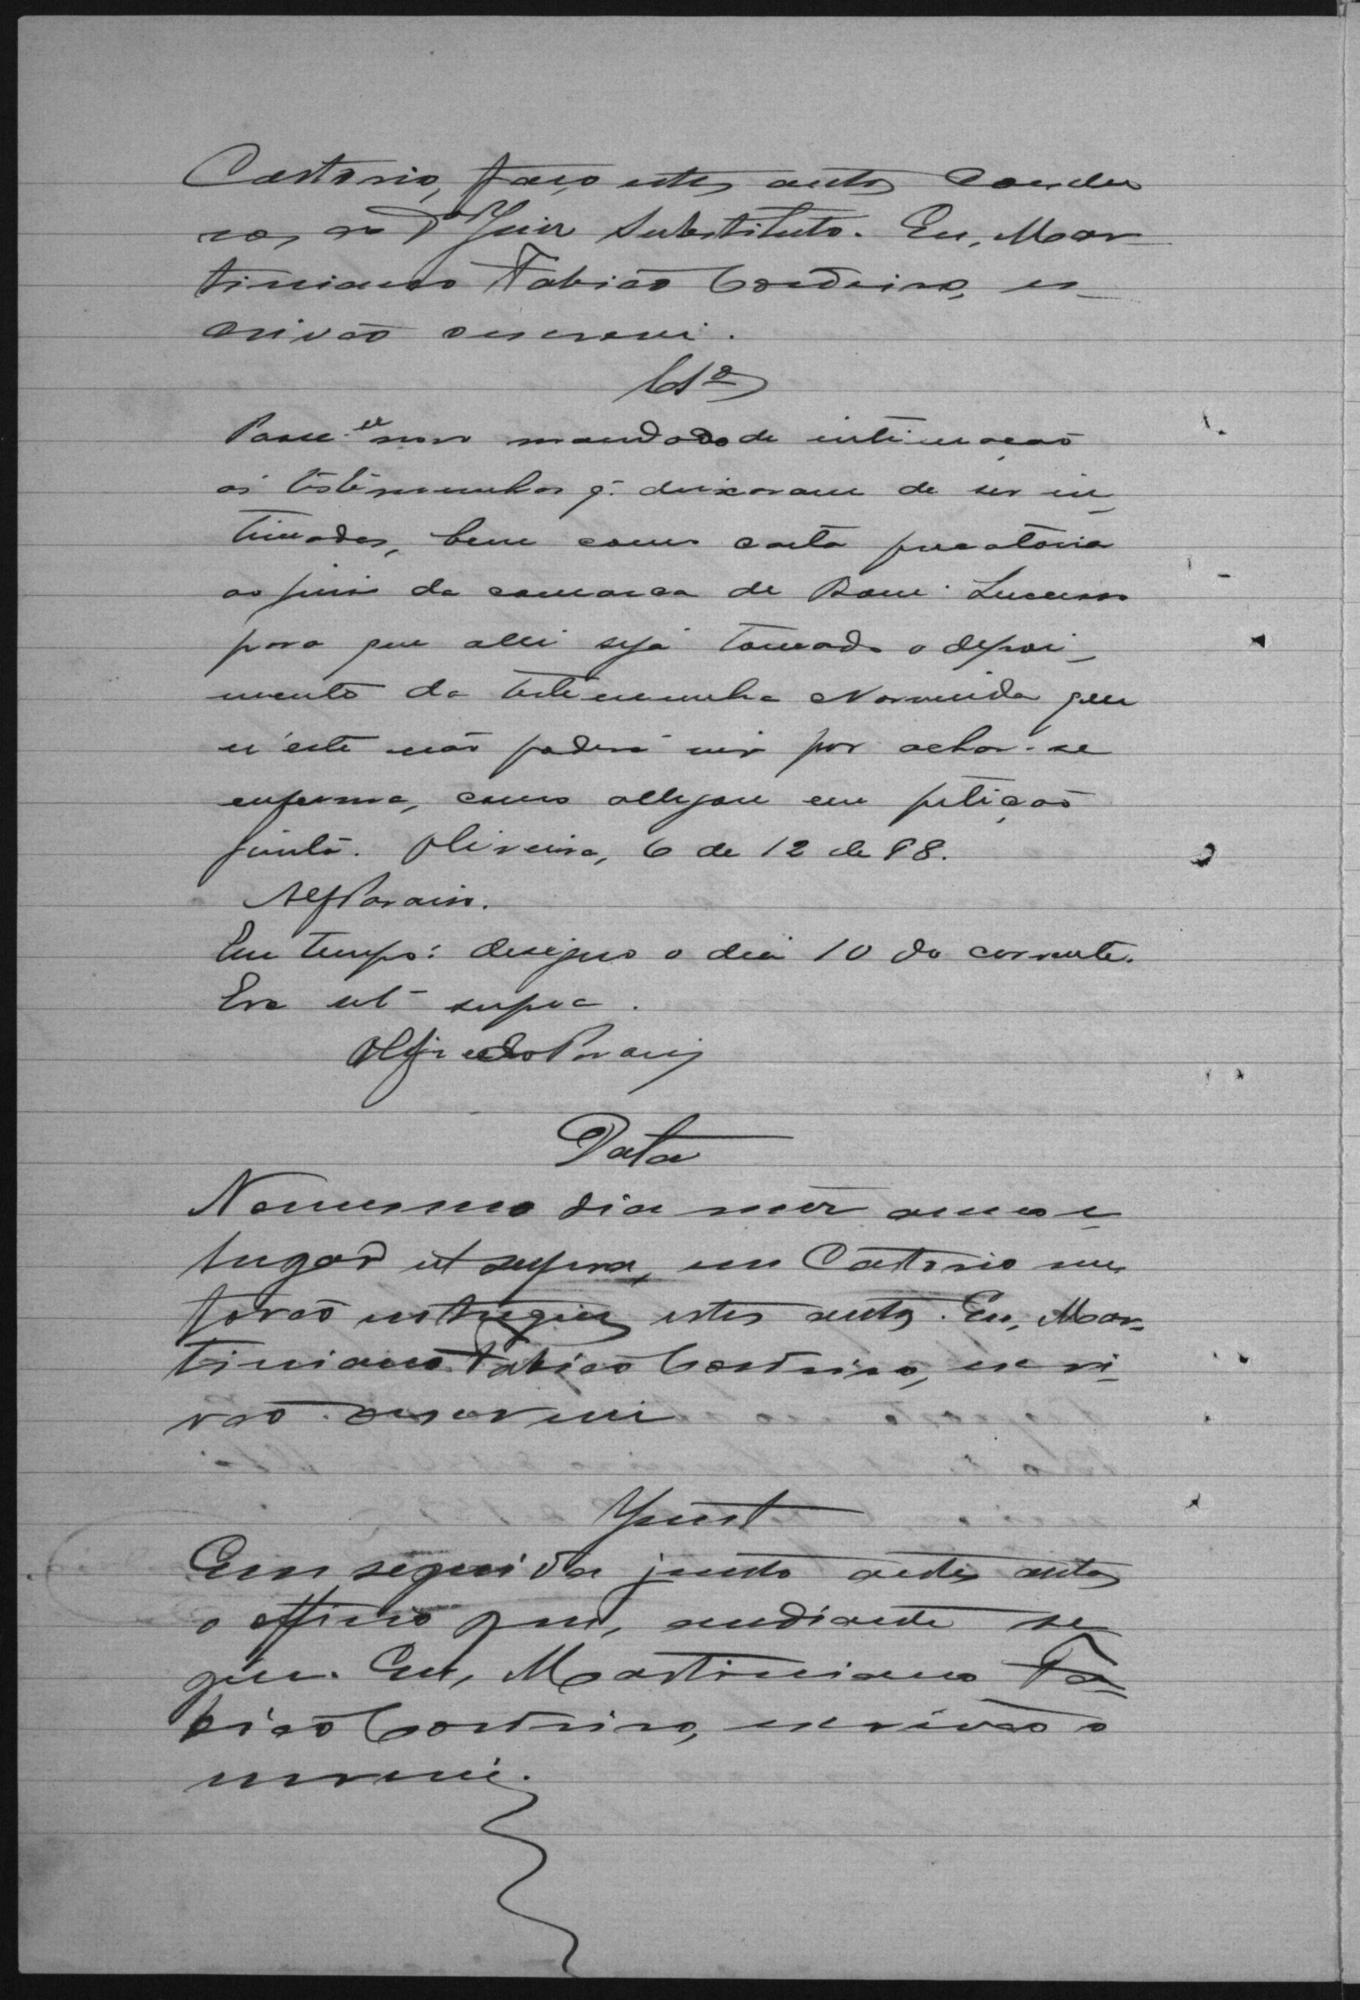 Cartorio, faço estes autos conclu
sos, ao Dr Juiz Substituto. Eu, Mar
timiano Fabião Cordeiro, es-
crivão o escrevi.
Clsº
Passe-se novo mandado de intimação
ás testemunhas q. deixaram de ser in-
timadas, bem como carta precatoria
ao juiz da comarca de Bom Successo
para que alli seja tomado o depoi-
mento da testemunha Normida que
n'este não poderá vir por achar-se
enferma, como allegou em petição
junta. Oliveira, 6 de 12 de 98.
Alf Paraiso.
Em tempo: designo o dia 10 do corrente.
Era ut supra.
Alfredo Paraiso
Data
No mesmo dia mez anno e
lugar ut supra, em Cartorio me
forão entregues estes autos. Eu, Mar-
timiano Fabião Cordeiro, escri-
vão o escrevi
Junt
Em seguida junto a estes autos
o officio que, em diante se
gue. Eu, Martimiano Fa-
bião Cordeiro, escrivão o
escrevi.